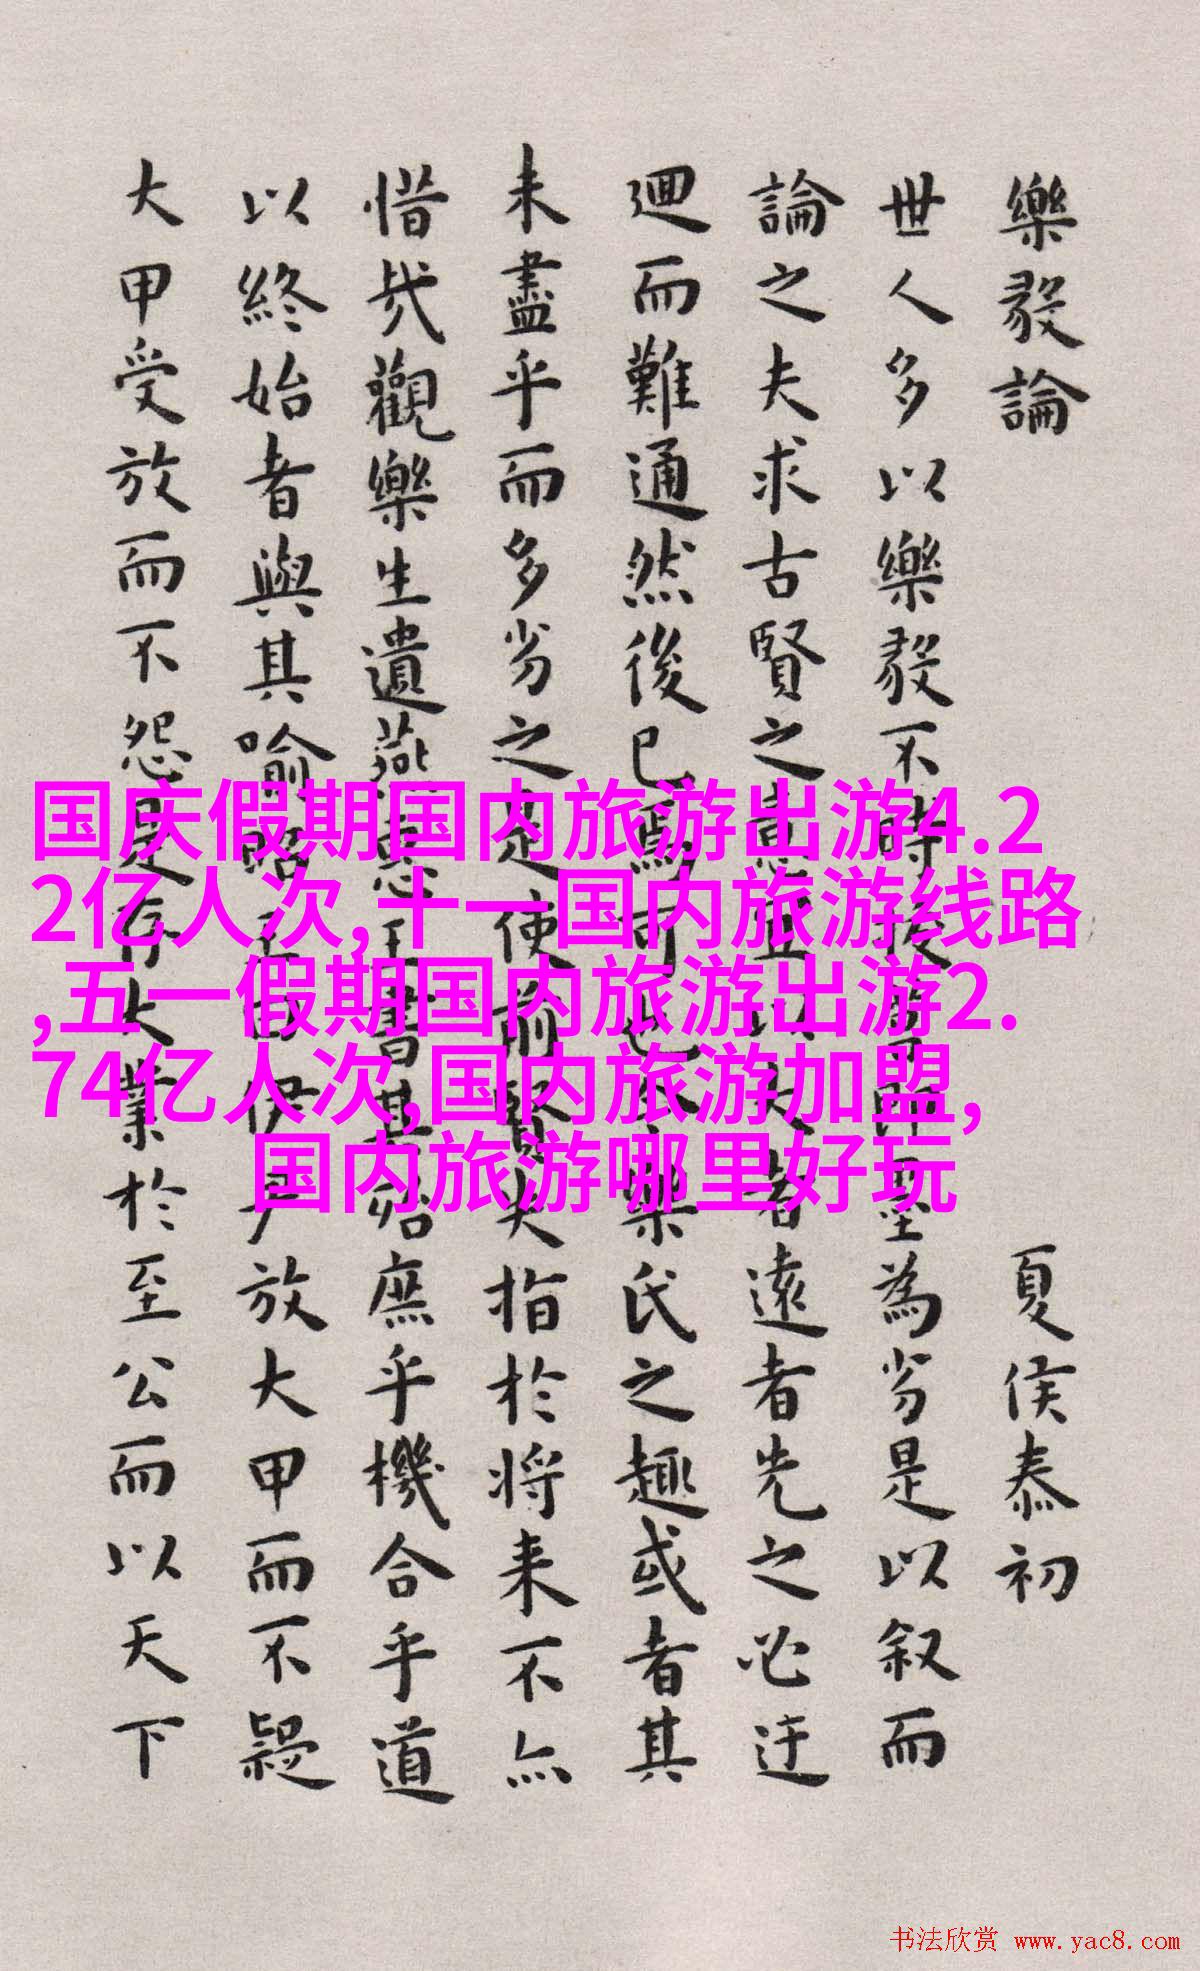 樂毅論 夏侯泰初
世人多以樂毅不時拔莒即墨為劣是以叙而
論之夫求古賢之意宜以大者遠者先之必迂
迴而難通然後已焉可也今樂氏之趣或者其
未盡乎而多劣之是使前賢失指於將来不亦
惜哉觀樂生遺燕惠王書其殆庶乎機合乎道
以終始者與其喻昭王曰伊尹放大甲而不疑
大甲受放而不怨是存大業於至公而以天下
国庆假期国内旅游出游4.2
2亿人次,十一国内旅游线路
,五一假期国内旅游出游2.
74亿人次,国内旅游加盟,
国内旅游哪里好玩
书法欣赏 www.yac8.com